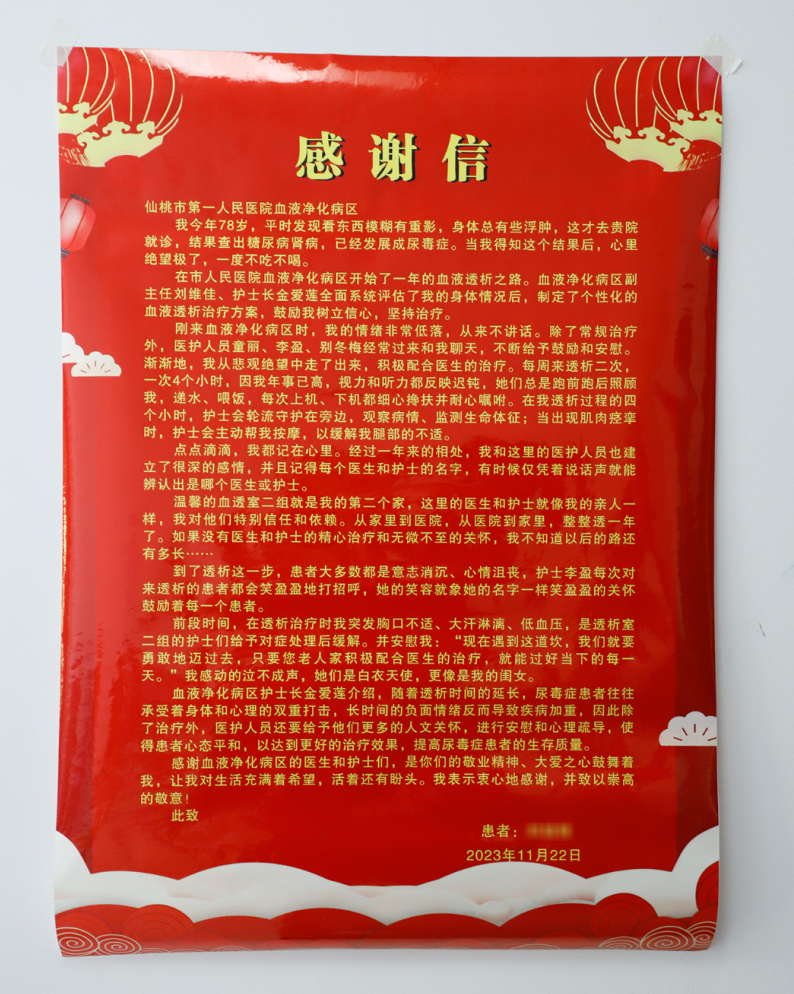 感谢信
仙桃市第一人民医院血液净化病区
我今年78岁，平时发现看东西模糊有重影，身体总有些浮肿，这才去贵院
就诊，结果查出糖尿病肾病，已经发展成尿毒症。当我得知这个结果后，心里
绝望极了，一度不吃不喝。
在市人民医院血液净化病区开始了一年的血液透析之路。血液净化病区副
主任刘维佳、护士长金爱莲全面系统评估了我的身体情况后，制定了个性化的
血液透析治疗方案，鼓励我树立信心，坚持治疗。
刚来血液净化病区时，我的情绪非常低落，从来不讲话。除了常规治疗
外，医护人员童丽、李盈、别冬梅经常过来和我聊天，不断给予鼓励和安慰。
渐渐地，我从悲观绝望中走了出来，积极配合医生的治疗。每周来透析二次，
一次4个小时，因我年事已高，视力和听力都反映迟钝，她们总是跑前跑后照顾
我，递水、喂饭，每次上机、下机都细心搀扶并耐心嘱咐。在我透析过程的四
个小时，护士会轮流守护在旁边，观察病情、监测生命体征；当出现肌肉痉挛
时，护士会主动帮我按摩，以缓解我腿部的不适。
点点滴滴，我都记在心里。经过一年来的相处，我和这里的医护人员也建
立了很深的感情，并且记得每个医生和护士的名字，有时候仅凭着说话声就能
辨认出是哪个医生或护士。
温馨的血透室二组就是我的第二个家，这里的医生和护士就像我的亲人一
样，我对他们特别信任和依赖。从家里到医院，从医院到家里，整整透一年
了。如果没有医生和护士的精心治疗和无微不至的关怀，我不知道以后的路还
有多长……
到了透析这一步，患者大多数都是意志消沉、心情沮丧，护士李盈每次对
来透析的患者都会笑盈盈地打招呼，她的笑容就象她的名字一样笑盈盈的关怀
鼓励着每一个患者。
前段时间，在透析治疗时我突发胸口不适、大汗淋漓、低血压，是透析室
二组的护士们给予对症处理后缓解。并安慰我：“现在遇到这道坎，我们就要
勇敢地迈过去，只要您老人家积极配合医生的治疗，就能过好当下的每一
天。”我感动的泣不成声，她们是白衣天使，更像是我的闺女。
血液净化病区护士长金爱莲介绍，随着透析时间的延长，尿毒症患者往往
承受着身体和心理的双重打击，长时间的负面情绪反而导致疾病加重，因此除
了治疗外，医护人员还要给予他们更多的人文关怀，进行安慰和心理疏导，使
得患者心态平和，以达到更好的治疗效果，提高尿毒症患者的生存质量。
感谢血液净化病区的医生和护士们，是你们的敬业精神、大爱之心鼓舞着
我，让我对生活充满着希望，活着还有盼头。我表示衷心地感谢，并致以崇高
的敬意！
此致
患者：
2023年11月22日